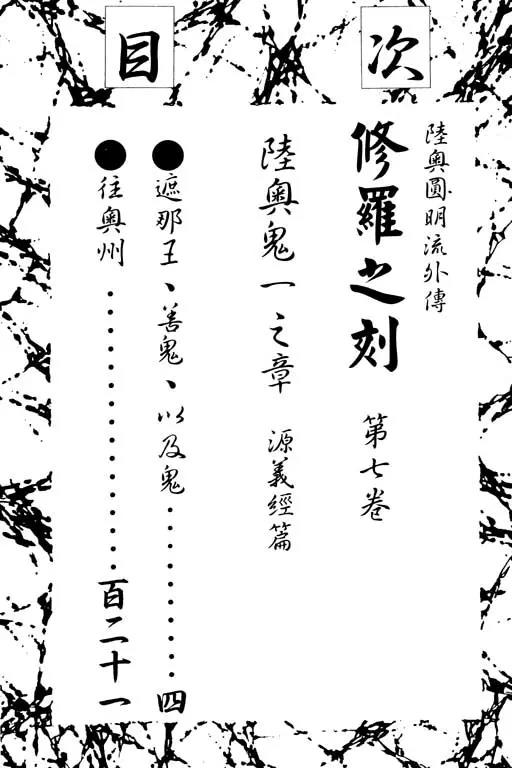 目次
陸奧圓明流外傳
修羅之刻 第七卷
陸奧鬼一之章 源義經篇
●遮那王、善鬼、以及鬼……………四
●往奧州……………………百二十一